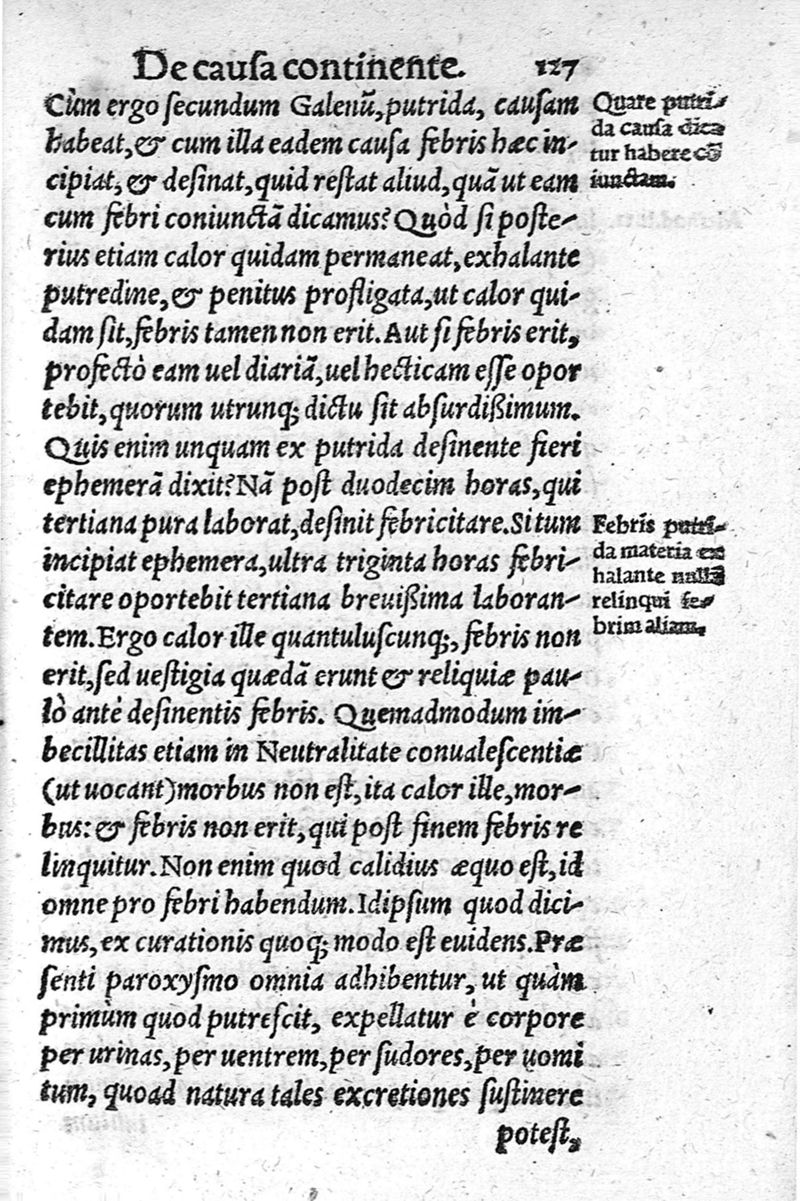 De causa continente. 127
Cùm ergo secundum Galenũ, putrida, causam
habeat, & cum illa eadem causa febris hæc in-
cipiat, & desinat, quid restat aliud, quã ut eam
cum febri coniunctã dicamus? Quòd si poste-
rius etiam calor quidam permaneat, exhalante
putredine, & penitus profligata, ut calor qui-
dam sit, febris tamen non erit. Aut si febris erit,
profectò eam uel diariã, uel hecticam esse opor
tebit, quorum utrunq; dictu sit absurdißimum.
Quis enim unquam ex putrida desinente fieri
ephemerã dixit? Nã post duodecim horas, qui
tertiana pura laborat, desinit febricitare. Si tum
incipiat ephemera, ultra triginta horas febri-
citare oportebit tertiana breuißima laboran-
tem. Ergo calor ille quantuluscunq;, febris non
erit, sed uestigia quædã erunt & reliquiæ pau-
lò antè desinentis febris. Quemadmodum im-
becillitas etiam in Neutralitate conualescentiæ
(ut uocant) morbus non est, ita calor ille, mor-
bus: & febris non erit, qui post finem febris re
linquitur. Non enim quod calidius æquo est, id
omne pro febri habendum. Idipsum quod dici-
mus, ex curationis quoq; modo est euidens. Præ
senti paroxysmo omnia adhibentur, ut quàm
primùm quod putrescit, expellatur è corpore
per urinas, per uentrem, per sudores, per uomi
tum, quoad natura tales excretiones sustinere
potest,
Quare putri-
da causa dica
tur habere cõ
iunctam.
Febris putri-
da materia ex
halante nullã
relinqui fe-
brim aliam.